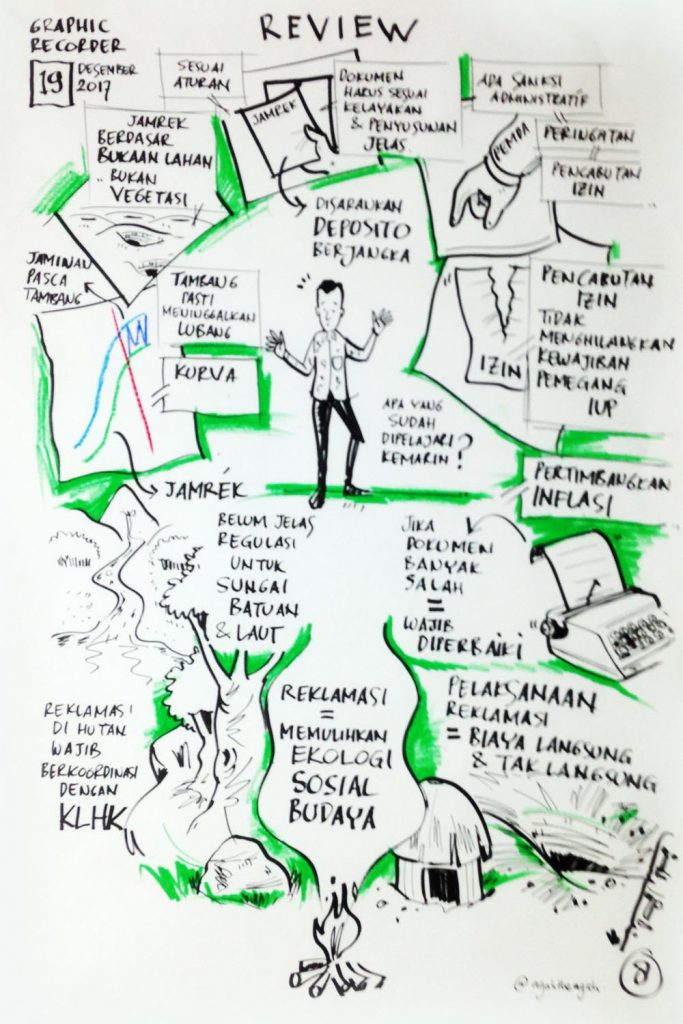 GRAPHIC
RECORDER
19 DESEMBER
2017
REVIEW
SESUAI
ATURAN
JAMREK
DOKUMEN
HARUS SESUAI
KELAYAKAN
& PENYUSUNAN
JELAS
ADA SANKSI
ADMINISTRATIF
PEMDA
PERINGATAN
PENCABUTAN
IZIN
JAMREK
BERDASAR
BUKAAN LAHAN
.. BUKAN
VEGETASI
DISARANKAN
DEPOSITO
BERJANGKA
JAMINAN
PASCA
TAMBANG
TAMBANG
PASTI
MENINGGALKAN
LUBANG
KURVA
JAMREK
IZIN
PENCABUTAN
IZIN
TIDAK
MENGHILANGKAN
KEWAJIBAN
PEMEGANG
IUP
APA YANG
SUDAH
DIPELAJARI
KEMARIN?
PERTIMBANGKAN
INFLASI
BELUM JELAS
REGULASI
UNTUK
SUNGAI
BATUAN
& LAUT
JIKA
DOKUMEN
BANYAK
SALAH
=
WAJIB
DIPERBAIKI
REKLAMASI
DI HUTAN
WAJIB
BERKOORDINASI
DENGAN
KLHK
REKLAMASI
=
MEMULIHKAN
EKOLOGI
SOSIAL
BUDAYA
PELAKSANAAN
REKLAMASI
= BIAYA LANGSUNG
& TAK LANGSUNG
8